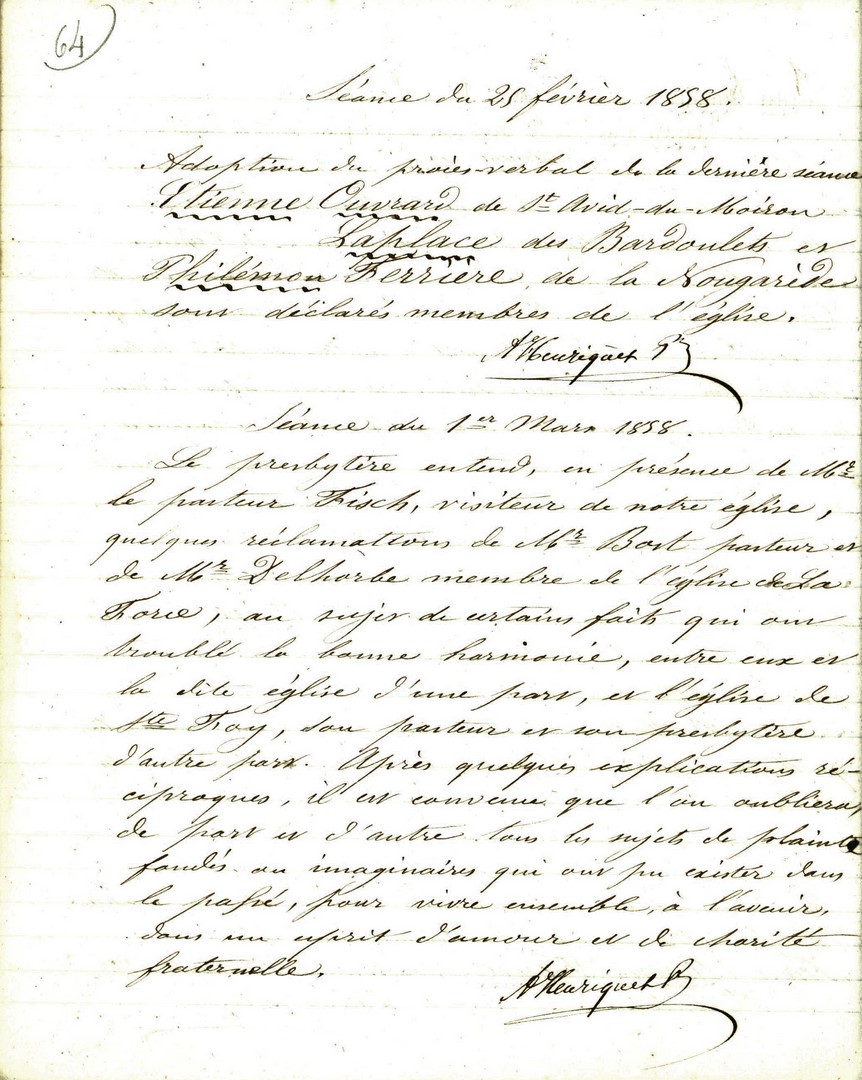 64
Séance du 25 février 1858.
Adoption du procès-verbal de la dernière séance
Etienne Ouvrard de St Avid-du-Moiron
Laplace des Bardoulets et
Philémon Ferrière de la Nougarède
sont déclarés membres de l'église.
A Henriquet Pr
Séance du 1er Mars 1858.
Le presbytère entend, en présence de Mr
le pasteur Fisch, visiteur de notre église,
quelques réclamations de Mr Bost pasteur et
de Mr Delhorbe membre de l'église de La
Force, au sujet de certains faits qui ont
troublé la bonne harmonie, entre eux et
la dite église d'une part, et l'église de
Ste Foy, son pasteur et son presbytère
d'autre part. Après quelques explications ré-
ciproques, il est convenu que l'on oubliera,
de part et d'autre tous les sujets de plainte
fondés ou imaginaires qui ont pu exister dans
le passé, pour vivre ensemble, à l'avenir,
dans un esprit d'amour et de charité
fraternelle.
A Henriquet P